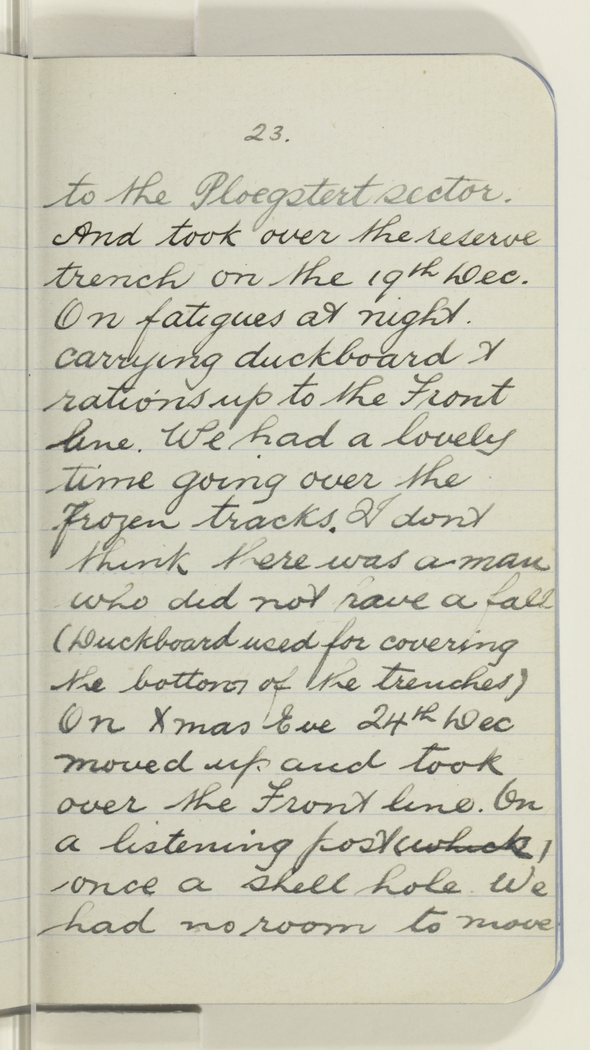 23.
to the Ploegstert sector.
And took over the reserve
trench on the 19th Dec.
On fatigues at night.
carrying duckboard &
rations up to the Front
line. We had a lovely
time going over the
frozen tracks. I dont
think there was a man
who did not have a fall
(Duckboard used for covering
the bottom of the trenches)
On Xmas Eve 24th Dec
moved up and took
over the Front line. On
a listening post (which)
once a shell hole. We
had no room to move